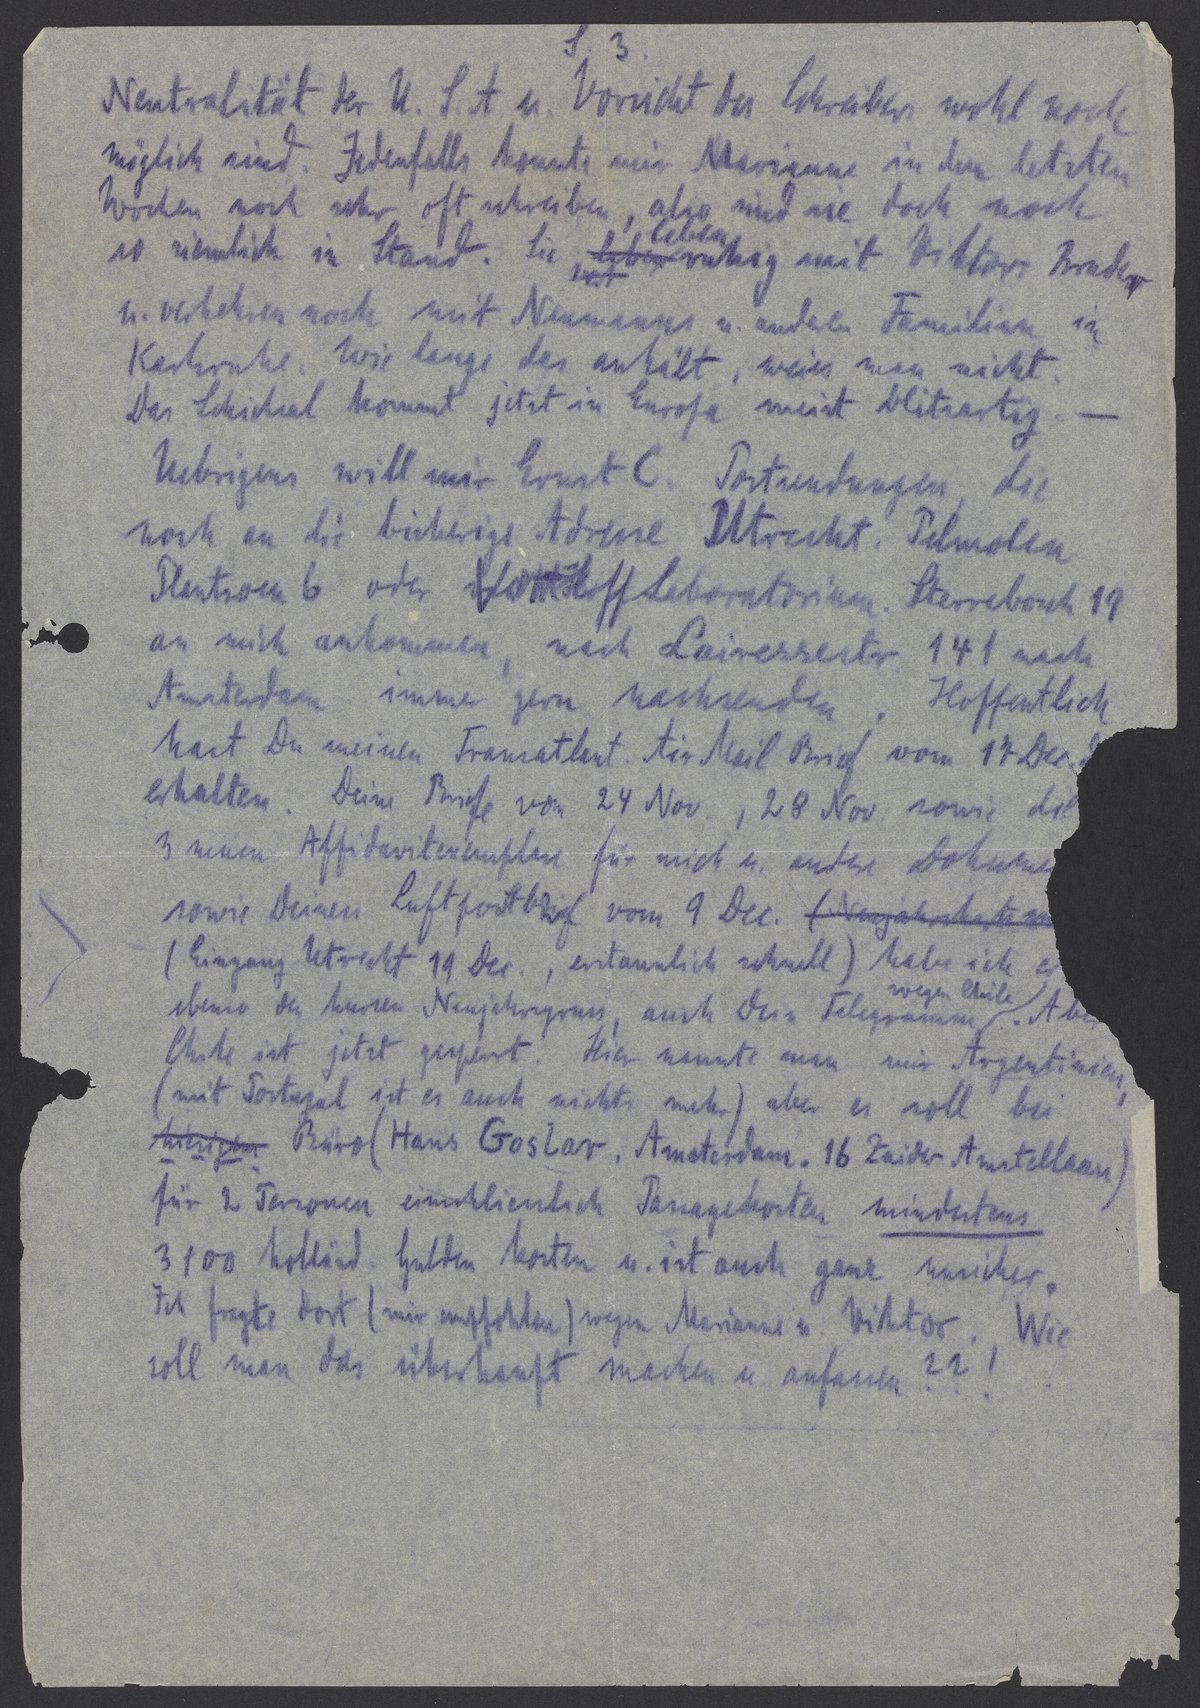 S. 3.
Neutralität der U. S. A u. Vorsicht des Schreibers wohl noch
möglich sind. Jedenfalls konnte mir Marianne in den letzten
Wochen noch sehr oft schreiben, also sind sie doch noch
so ziemlich in Stand. Sie leben ruhig mit Viktors Bruder
u. verkehren noch mit Neumanns u. anderen Familien in
Karlsruhe. Wie lange das anhält, weiss man nicht.
Das Schicksal kommt jetzt in Europa meist blitzartig. —
Uebrigens will mir Ernst C. Postsendungen, die
noch an die bisherige Adresse Utrecht. Pelmolen
Plantsoen 6 oder Hoff Laboratorium. Sterrebosch 19
an mich ankommen, nach Lairessestr. 141 nach
Amsterdam immer gern nachsenden. Hoffentlich
hast Du meinen Transatlant. Air Mail Brief vom 17 Dec.
erhalten. Deine Briefe vom 24 Nov., 28 Nov. sowie die
3 neuen Affidavitexemplare für mich u. andere Dokume
sowie Deinen Luftpostbrief vom 9 Dec. (Neujahrskarte
(Eingang Utrecht 19 Dec., erstaunlich schnell) habe ich
ebenso den kurzen Neujahrsgruss, auch Dein Telegramm wegen Chile. Aber
Chile ist jetzt gesperrt. Hier nannte man mir Argentinien,
(mit Portugal ist es auch nichts mehr) aber es soll bei
hiesigem Büro (Hans Goslar. Amsterdam. 16 Zuider Amstellaan)
für 2 Personen einschliesslich Passagekosten mindestens
3100 holländ. Gulden kosten u. ist auch ganz unsicher.
Ich fragte dort (mir empfohlen) wegen Marianne u. Viktor. Wie
soll man das überhaupt machen u. anfassen ??!